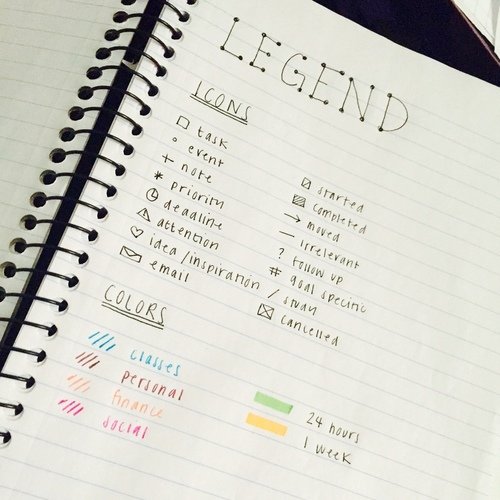 LEGEND
ICONS
task
° event
+ note
* priority
deadline
attention
♡ idea/inspiration
email
started
completed
→ moved
— irrelevant
? follow up
# goal specific
/ study
cancelled
COLORS
classes
personal
finance
social
24 hours
1 week